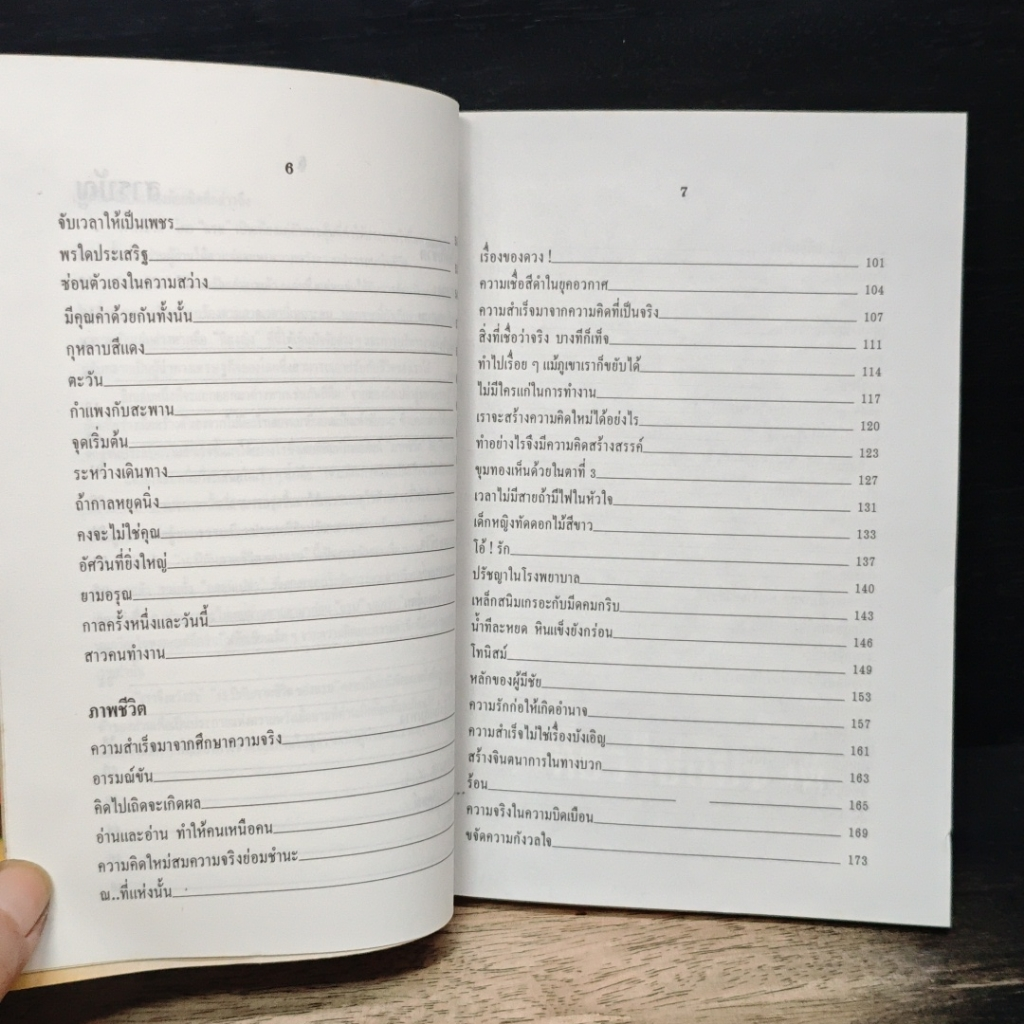 6
จับเวลาให้เป็นเพชร
พรใดประเสริฐ
ซ่อนตัวเองในความสว่าง
มีคุณค่าด้วยกันทั้งนั้น
กุหลาบสีแดง
ตะวัน
กำแพงกับสะพาน
จุดเริ่มต้น
ระหว่างเดินทาง
ถ้ากาลหยุดนิ่ง
คงจะไม่ใช่คุณ
อัศวินที่ยิ่งใหญ่
ยามอรุณ
กาลครั้งหนึ่งและวันนี้
สาวคนทำงาน
ภาพชีวิต
ความสำเร็จมาจากศึกษาความจริง
อารมณ์ขัน
คิดไปเถิดจะเกิดผล
อ่านและอ่าน ทำให้คนเหนือคน
ความคิดใหม่สมความจริงย่อมชำนะ
ณ..ที่แห่งนั้น
7
เรื่องของดวง ! 101
ความเชื่อสีดำในยุคอวกาศ 104
ความสำเร็จมาจากความคิดที่เป็นจริง 107
สิ่งที่เชื่อว่าจริง บางทีก็เท็จ 111
ทำไปเรื่อย ๆ แม้ภูเขาเราก็ขยับได้ 114
ไม่มีใครแก่ในการทำงาน 117
เราจะสร้างความคิดใหม่ได้อย่งไร 120
ทำอย่างไรจึงมีความคิดสร้างสรรค์ 123
ขุมทองเห็นด้วยในตาที่ 3 127
เวลาไม่มีสายถ้ามีไฟในหัวใจ 131
เด็กหญิงทัดดอกไม้สีขาว 133
โอ้ ! รัก 137
ปรัชญาในโรงพยาบาล 140
เหล็กสนิมเกรอะกับมีดคมกริบ 143
น้ำทีละหยด หินแข็งยังกร่อน 146
โทนิสม์ 149
หลักของผู้มีชัย 153
ความรักก่อให้เกิดอำนาจ 157
ความสำเร็จไม่ใช่เรื่องบังเอิญ 161
สร้างจินตนาการในทางบวก 163
ร้อน 165
ความจริงในความบิดเบือน 169
ขจัดความกังวลใจ 173